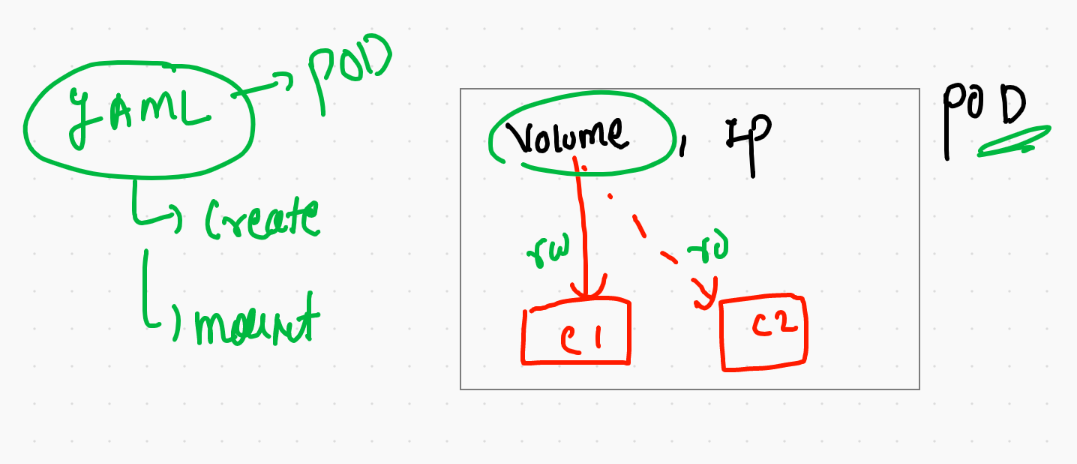 YAML
POD
Create
mount
Volume, IP
POD
rw
ro
C1
C2